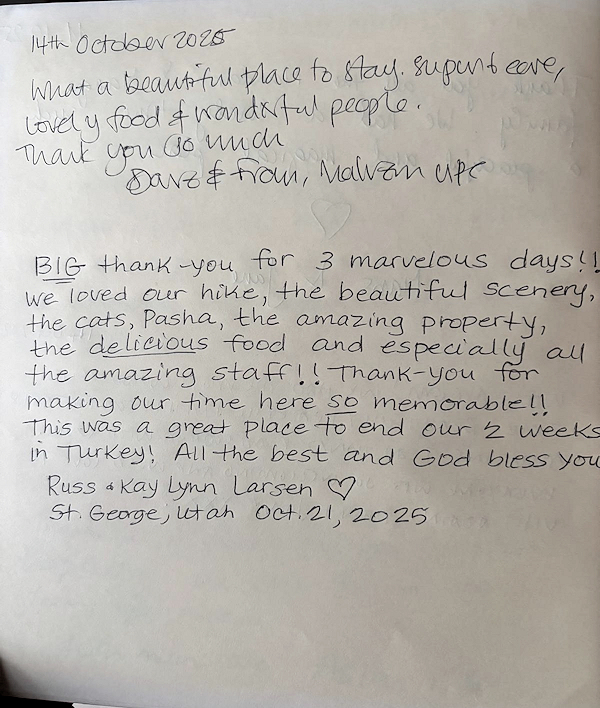 14th October 2025
What a beautiful place to stay. Superb care,
lovely food & wonderful people.
Thank you so much
Dave & Fran, Malvern UK
BIG thank-you for 3 marvelous days!!
We loved our hike, the beautiful scenery,
the cats, Pasha, the amazing property,
the delicious food and especially all
the amazing staff!! Thank-you for
making our time here so memorable!!
This was a great place to end our 2 weeks
in Turkey! All the best and God bless you
Russ & Kay Lynn Larsen ♡
St. George, Utah Oct. 21, 2025